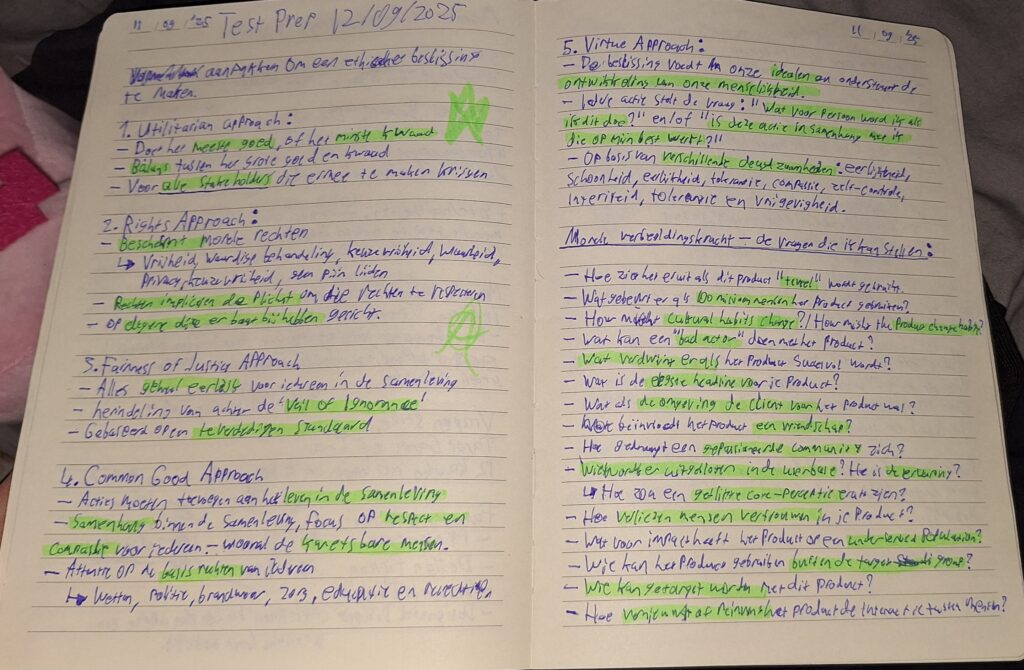 11 | 09 | '25 Test Prep 12/09/2025
aanpakken om een ethischer beslissing
te maken.
1. Utilitarian approach:
- Doet het meeste goed, of het minste kwaad
- Balans tussen het grote goed en kwaad
- Voor alle stakeholders die ermee te maken krijgen
2. Rights Approach:
- Beschermt morele rechten
↳ Vrijheid, waardige behandeling, keuzevrijheid, waarheid,
Privacy, keuzevrijheid, geen pijn lijden
- Rechten impliceren de plicht om die rechten te respecteren
- op degene die er baat bij hebben gericht.
3. Fairness of Justice Approach
- Alles gebeurt eerlijk voor iedereen in de samenleving
- herindeling van achter de 'Veil of Ignorance'
- Gebaseerd op een te verdedigen standaard
4. Common Good Approach
- Acties moeten toevoegen aan het leven in de samenleving
- Samenhang binnen de samenleving, focus op respect en
compassie voor iedereen - vooral de kwetsbare mensen.
- Attentie op de basis rechten van iedereen
↳ Wetten, politie, brandweer, zorg, educatie en recreatie.
11 | 09 | '25
5. Virtue Approach:
- De beslissing voedt in onze idealen en ondersteunt de
ontwikkeling van onze menselijkheid.
- Iedere actie stelt de vraag: "Wat voor persoon word ik als
ik dit doe?" en/of "is deze actie in samenhang met ik
die op mijn best werkt?"
- Op basis van verschillende deugdzaamheden: eerlijkheid,
schoonheid, eerlijkheid, tolerantie, compassie, zelf-controle,
integriteit, tolerantie en vrijgevigheid.
Morele verbeeldingskracht - de vragen die ik kan stellen:
- Hoe ziet het eruit als dit product "teveel" wordt gebruikt.
- Wat gebeurt er als 100 miljoen mensen het product gebruiken?
- How might cultural habits change? / How might the product change habits?
- Wat kan een "bad actor" doen met het product?
- Wat verdwijnt er als het product succesvol wordt?
- Wat is de ergste headline voor je product?
- Wat als de omgeving de client voor het product was?
- Wat beinvloedt het product een vriendschap?
- Hoe gedraagt een gepassioneerde community zich?
- Wie wordt er uitgesloten in de userbase? Hoe is de ervaring?
↳ Hoe zou een gelitere core-perceptie eruit zien?
- Hoe verliezen mensen vertrouwen in je product?
- Wat voor impact heeft het product op een under-served population?
- Wie kan het product gebruiken buiten de target groep?
- Wie kan getarget worden met dit product?
- Hoe het product de interactie tussen mensen?